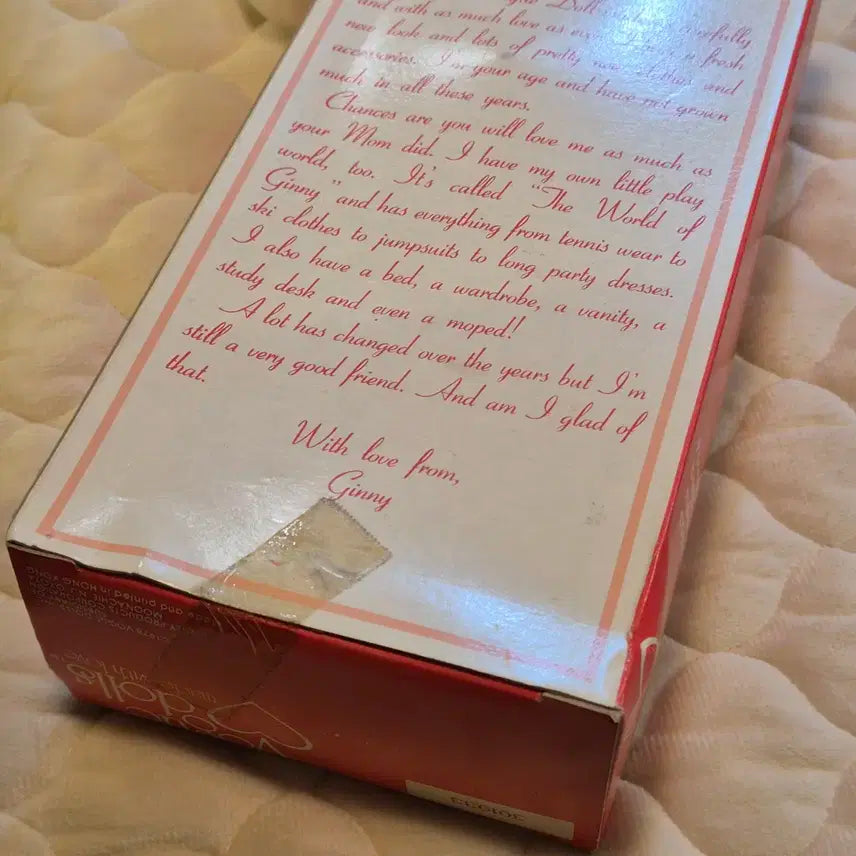 Doll
and with as much love as fresh
new look and lots of pretty new clothes and
accessories. I'm your age and have not grown
much in all these years.
Chances are you will love me as much as
your Mom did. I have my own little play
world, too. It's called "The World of
Ginny" and has everything from tennis wear to
ski clothes to jumpsuits to long party dresses.
I also have a bed, a wardrobe, a vanity, a
study desk and even a moped!
A lot has changed over the years but I'm
still a very good friend. And am I glad of
that.
With love from,
Ginny
made and printed in HONG KONG
MOONACHIE, N.J.
PRODUCTS
dolls
with love
301933